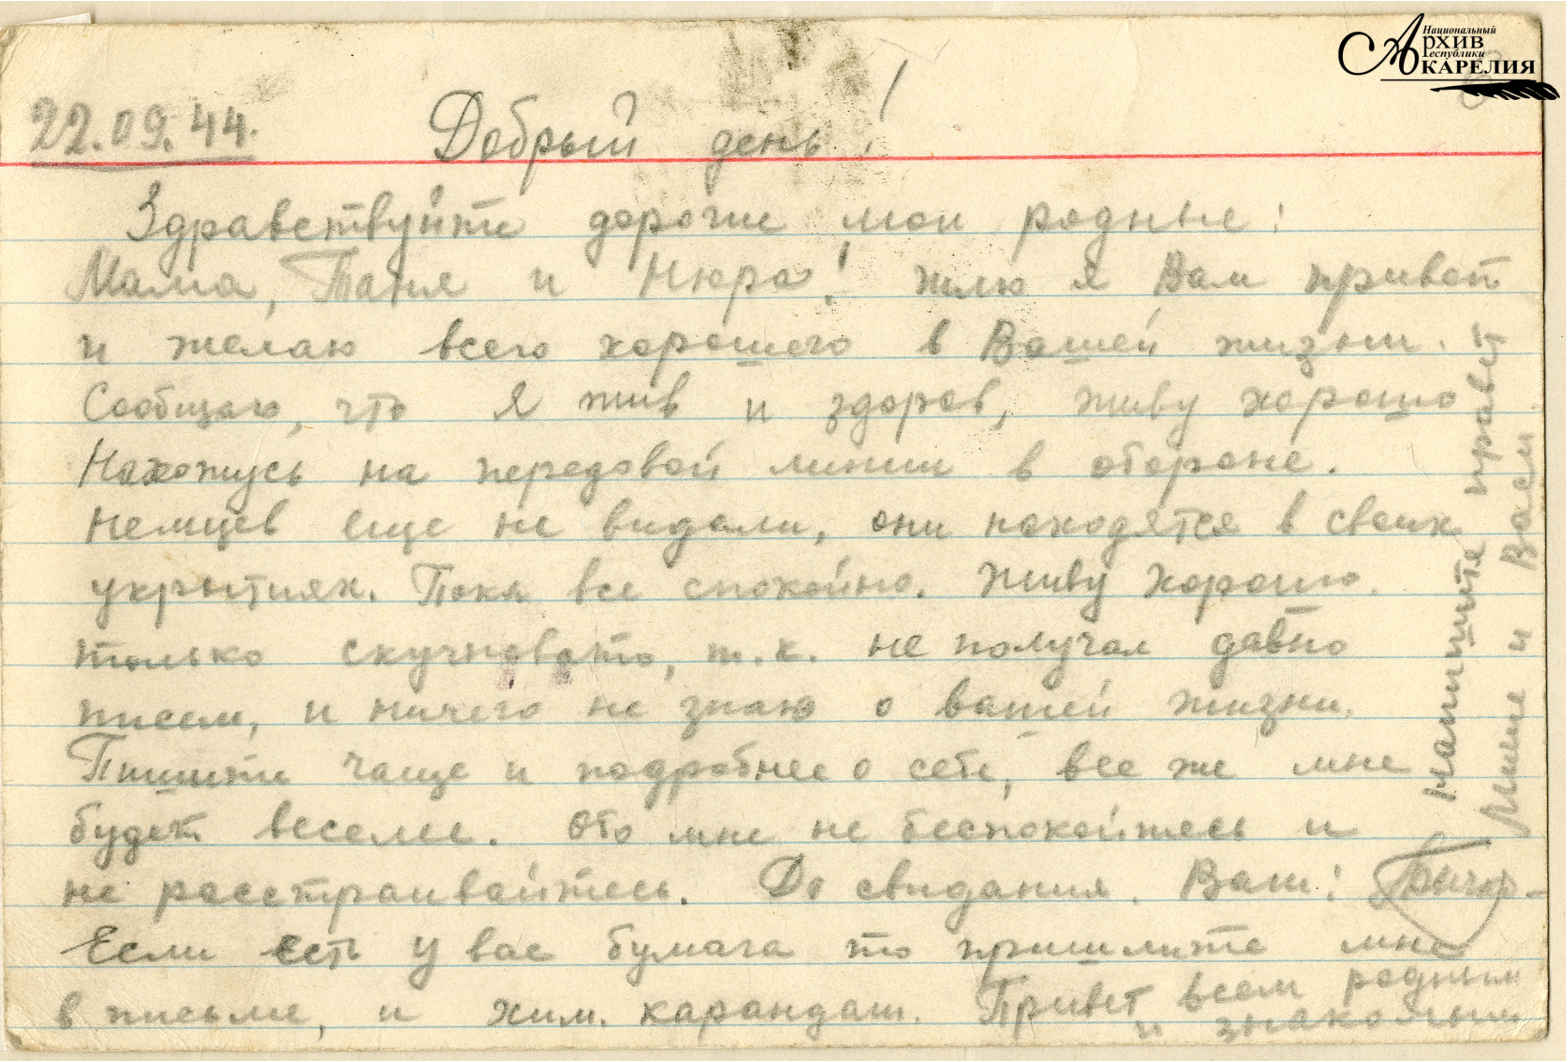 Национальный
Архив
Республики
Карелия
22.09.44. Добрый день!
Здравствуйте дорогие мои родные:
Мама, Таня и Нюра! Шлю я Вам привет
и желаю всего хорошего в Вашей жизни.
Сообщаю, что я жив и здоров, живу хорошо
Нахожусь на передовой линии в обороне.
Немцев еще не видали, они находятся в своих
укрытиях. Пока все спокойно. Живу хорошо.
только скучновато, т.к. не получал давно
писем, и ничего не знаю о вашей жизни.
Пишите чаще и подробнее о себе, все же мне
будет веселее. Обо мне не беспокойтесь и
не расстраивайтесь. До свидания. Ваш:
Если есть у вас бумага то пришлите мне
в письме, и хим. карандаш. Привет всем родным
и знакомым
Напишите привет
Мише и Васе